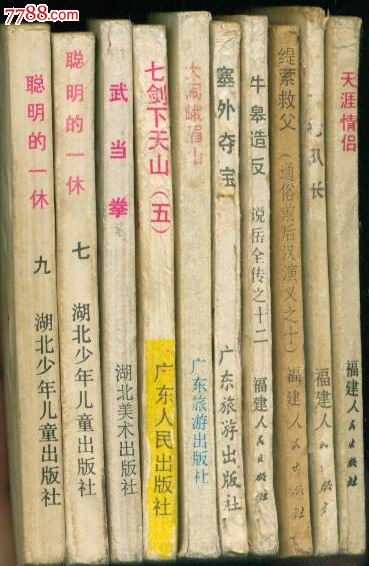 7788.com
聪明的一休 九 湖北少年儿童出版社
聪明的一休 七 湖北少年儿童出版社
武当拳 湖北美术出版社
七剑下天山（五） 广东人民出版社
大闹峨眉山 广东旅游出版社
塞外夺宝 广东旅游出版社
牛皋造反 说岳全传之十二 福建人民出版社
缇萦救父（通俗前后汉演义之十） 福建人民出版社
队长 福建人民出版社
天涯情侣 福建人民出版社